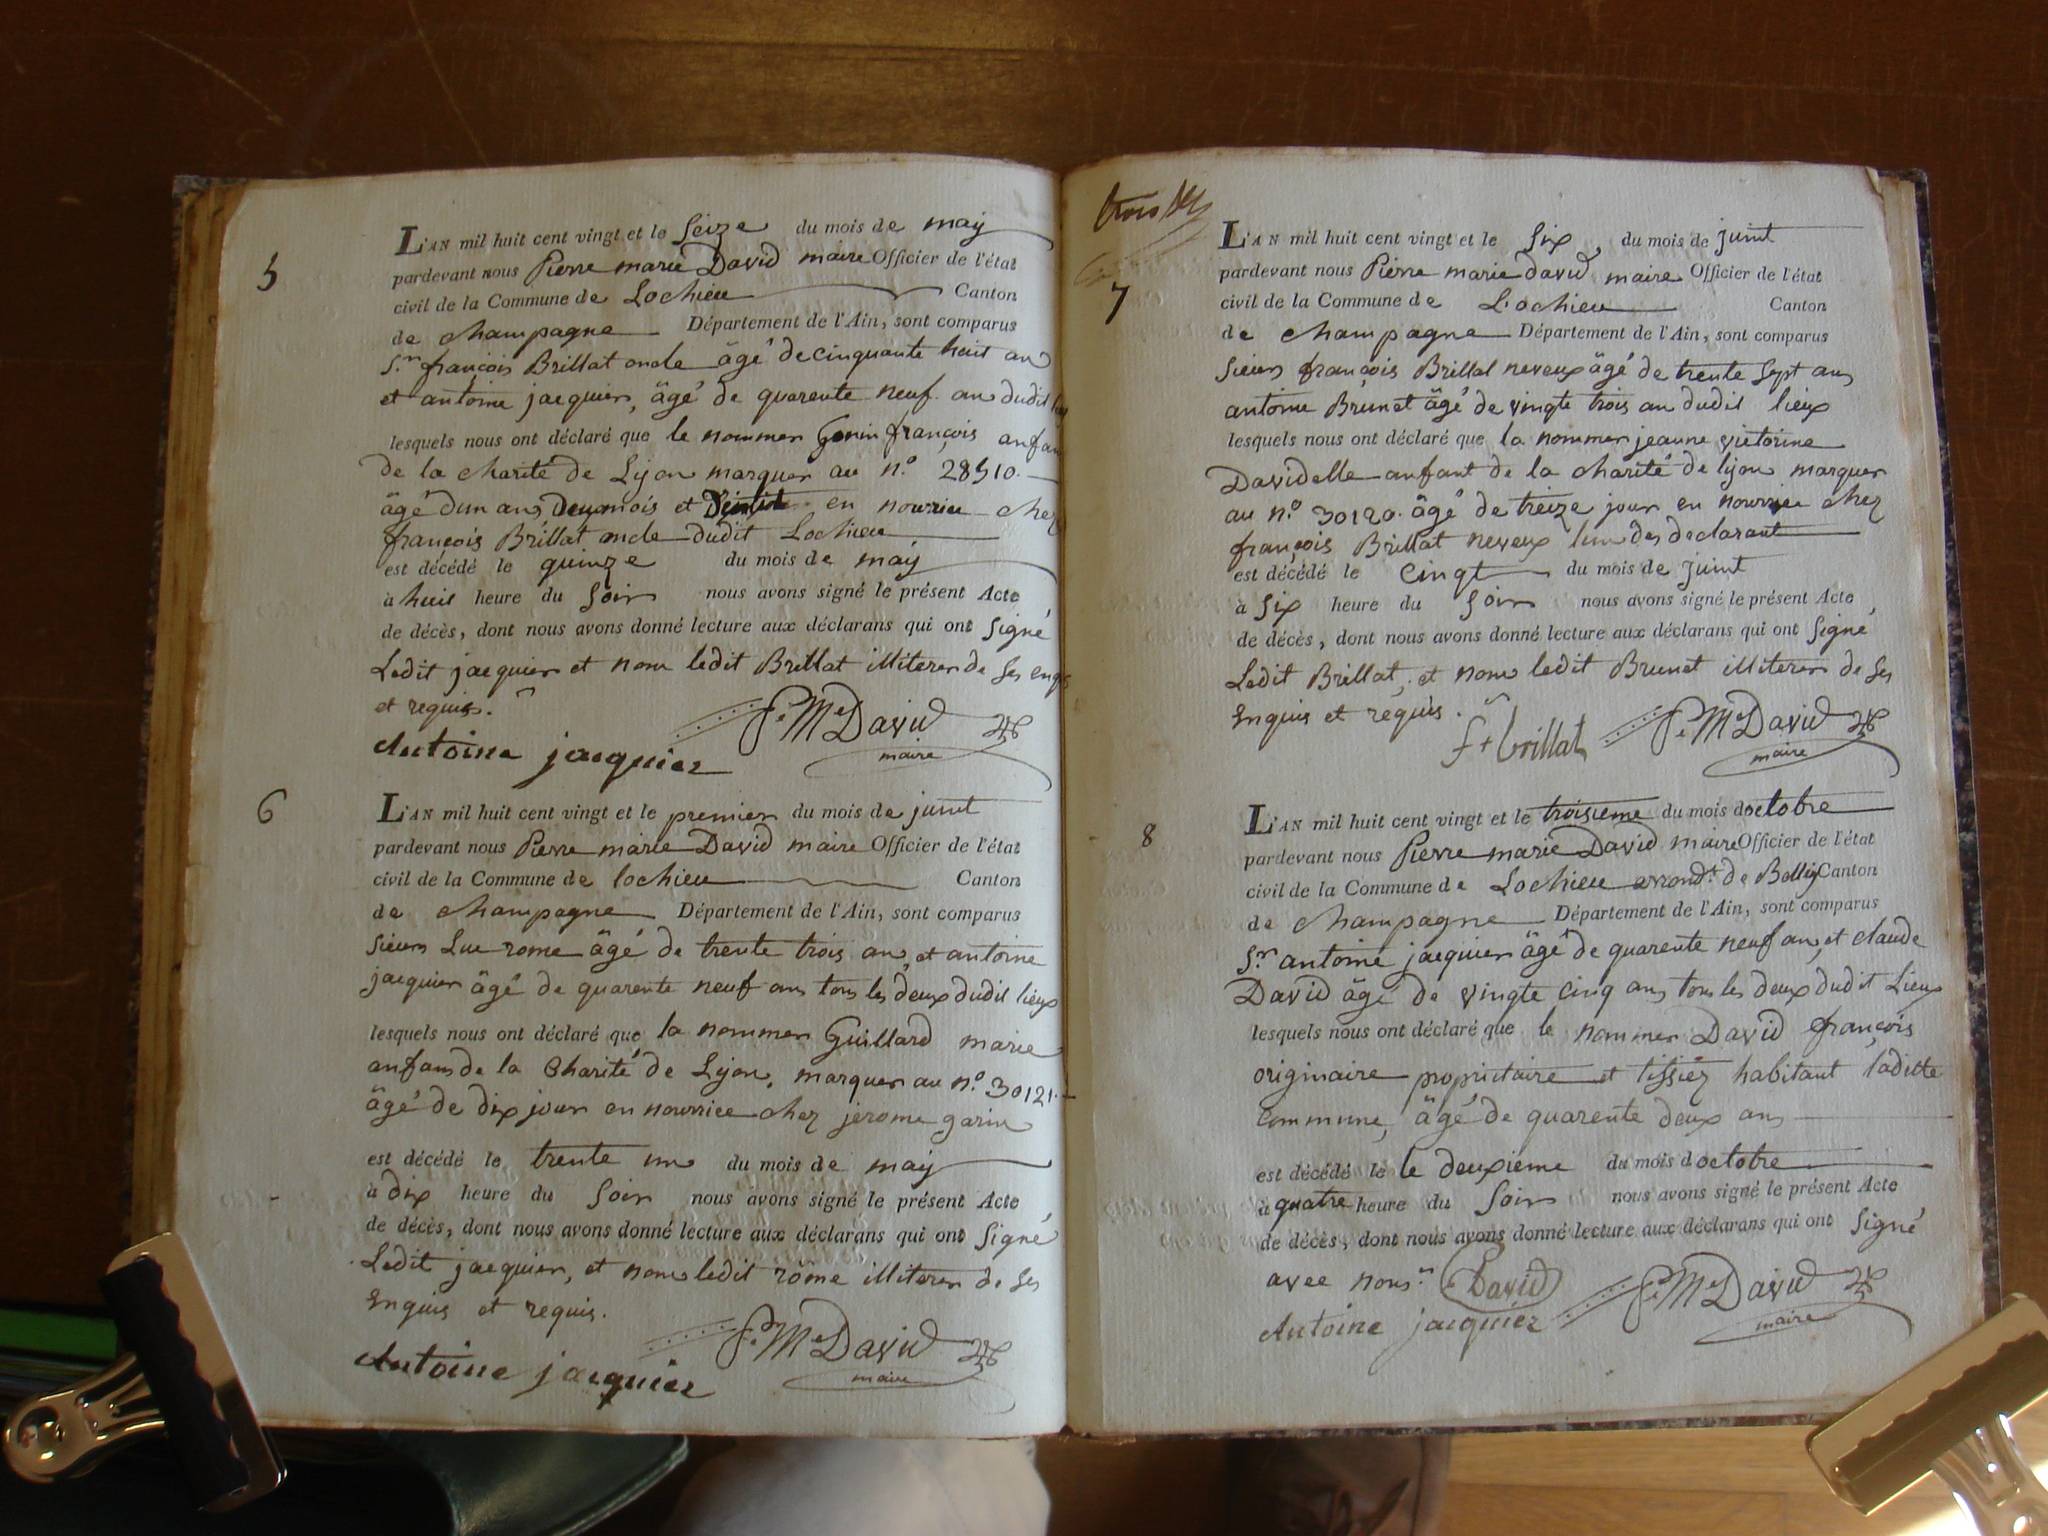 5
L'AN mil huit cent vingt et le Seize du mois de may
pardevant nous Pierre marie David maire Officier de l'état
civil de la Commune de Lochieu Canton
de champagne Département de l'Ain, sont comparus
Sr. françois Brillat oncle âgé de cinquante huit an
et antoine jacquier, âgé de quarente neuf an dudit
lesquels nous ont déclaré que le nommer Gonin françois anfan
de la charité de Lyon marquer au n.o 28510.
âgé dun an, Deux mois et en nourrice chez
françois Brillat oncle dudit Lochieu
est décédé le quinze du mois de may
à huit heure du Soir nous avons signé le présent Acte
de décès, dont nous avons donné lecture aux déclarans qui ont Signé
Ledit jacquier et non ledit Brillat illiterer de Ses enq
et requis.
Antoine jacquier P.Me David
maire
6
L'AN mil huit cent vingt et le premier du mois de juint
pardevant nous Pierre marie David maire Officier de l'état
civil de la Commune de lochieu Canton
de champagne Département de l'Ain, sont comparus
Sieurs Luc rome âgé de trente trois an, et antoine
jacquier âgé de quarente neuf ans tous les deux dudit lieux
lesquels nous ont déclaré que la nommer Guillard marie
anfans de la Charité de Lyon, marquer au n.o 30121.
âgé de dix jour en nourrice chez jerome garin
est décédé le trente un du mois de may
à dix heure du Soir nous avons signé le présent Acte
de décès, dont nous avons donné lecture aux déclarans qui ont Signé
Ledit jacquier, et non ledit rome illiterer de Ses
Enquis et requis.
Antoine jacquier P.Me David
maire
trois
7
L'AN mil huit cent vingt et le Six, du mois de juint
pardevant nous Pierre marie david maire Officier de l'état
civil de la Commune de Lochieu Canton
de champagne Département de l'Ain, sont comparus
Sieurs françois Brillat neveux âgé de trente Sept ans
antoine Brunet âgé de vingte trois an dudit lieux
lesquels nous ont déclaré que la nommer jeanne victorine
Davidelle anfant de la charité de lyon marquer
au n.o 30120. âgé de treize jour en nourrice chez
françois Brillat neveux lun des declarant
est décédé le Cinqt du mois de juint
à Six heure du Soir nous avons signé le présent Acte
de décès, dont nous avons donné lecture aux déclarans qui ont Signé
Ledit Brillat, et non ledit Brunet illiterer de Ses
Enquis et requis.
f+ brillat P.Me David
maire
8
L'AN mil huit cent vingt et le troisieme du mois doctobre
pardevant nous Pierre marie David maire Officier de l'état
civil de la Commune de Lochieu arrondt. de Belley Canton
de champagne Département de l'Ain, sont comparus
Sr. antoine jacquier âgé de quarente neuf an, et claude
David âgé de vingte cinq ans tous les deux dudit Lieux
lesquels nous ont déclaré que le nommer David françois
originaire propriétaire et tissiez habitant laditte
Commune, âgé de quarente deux ans
est décédé le le deuxieme du mois doctobre
à quatre heure du Soir nous avons signé le présent Acte
de décès, dont nous avons donné lecture aux déclarans qui ont Signé
avec nous. David P.Me David
Antoine jacquier maire